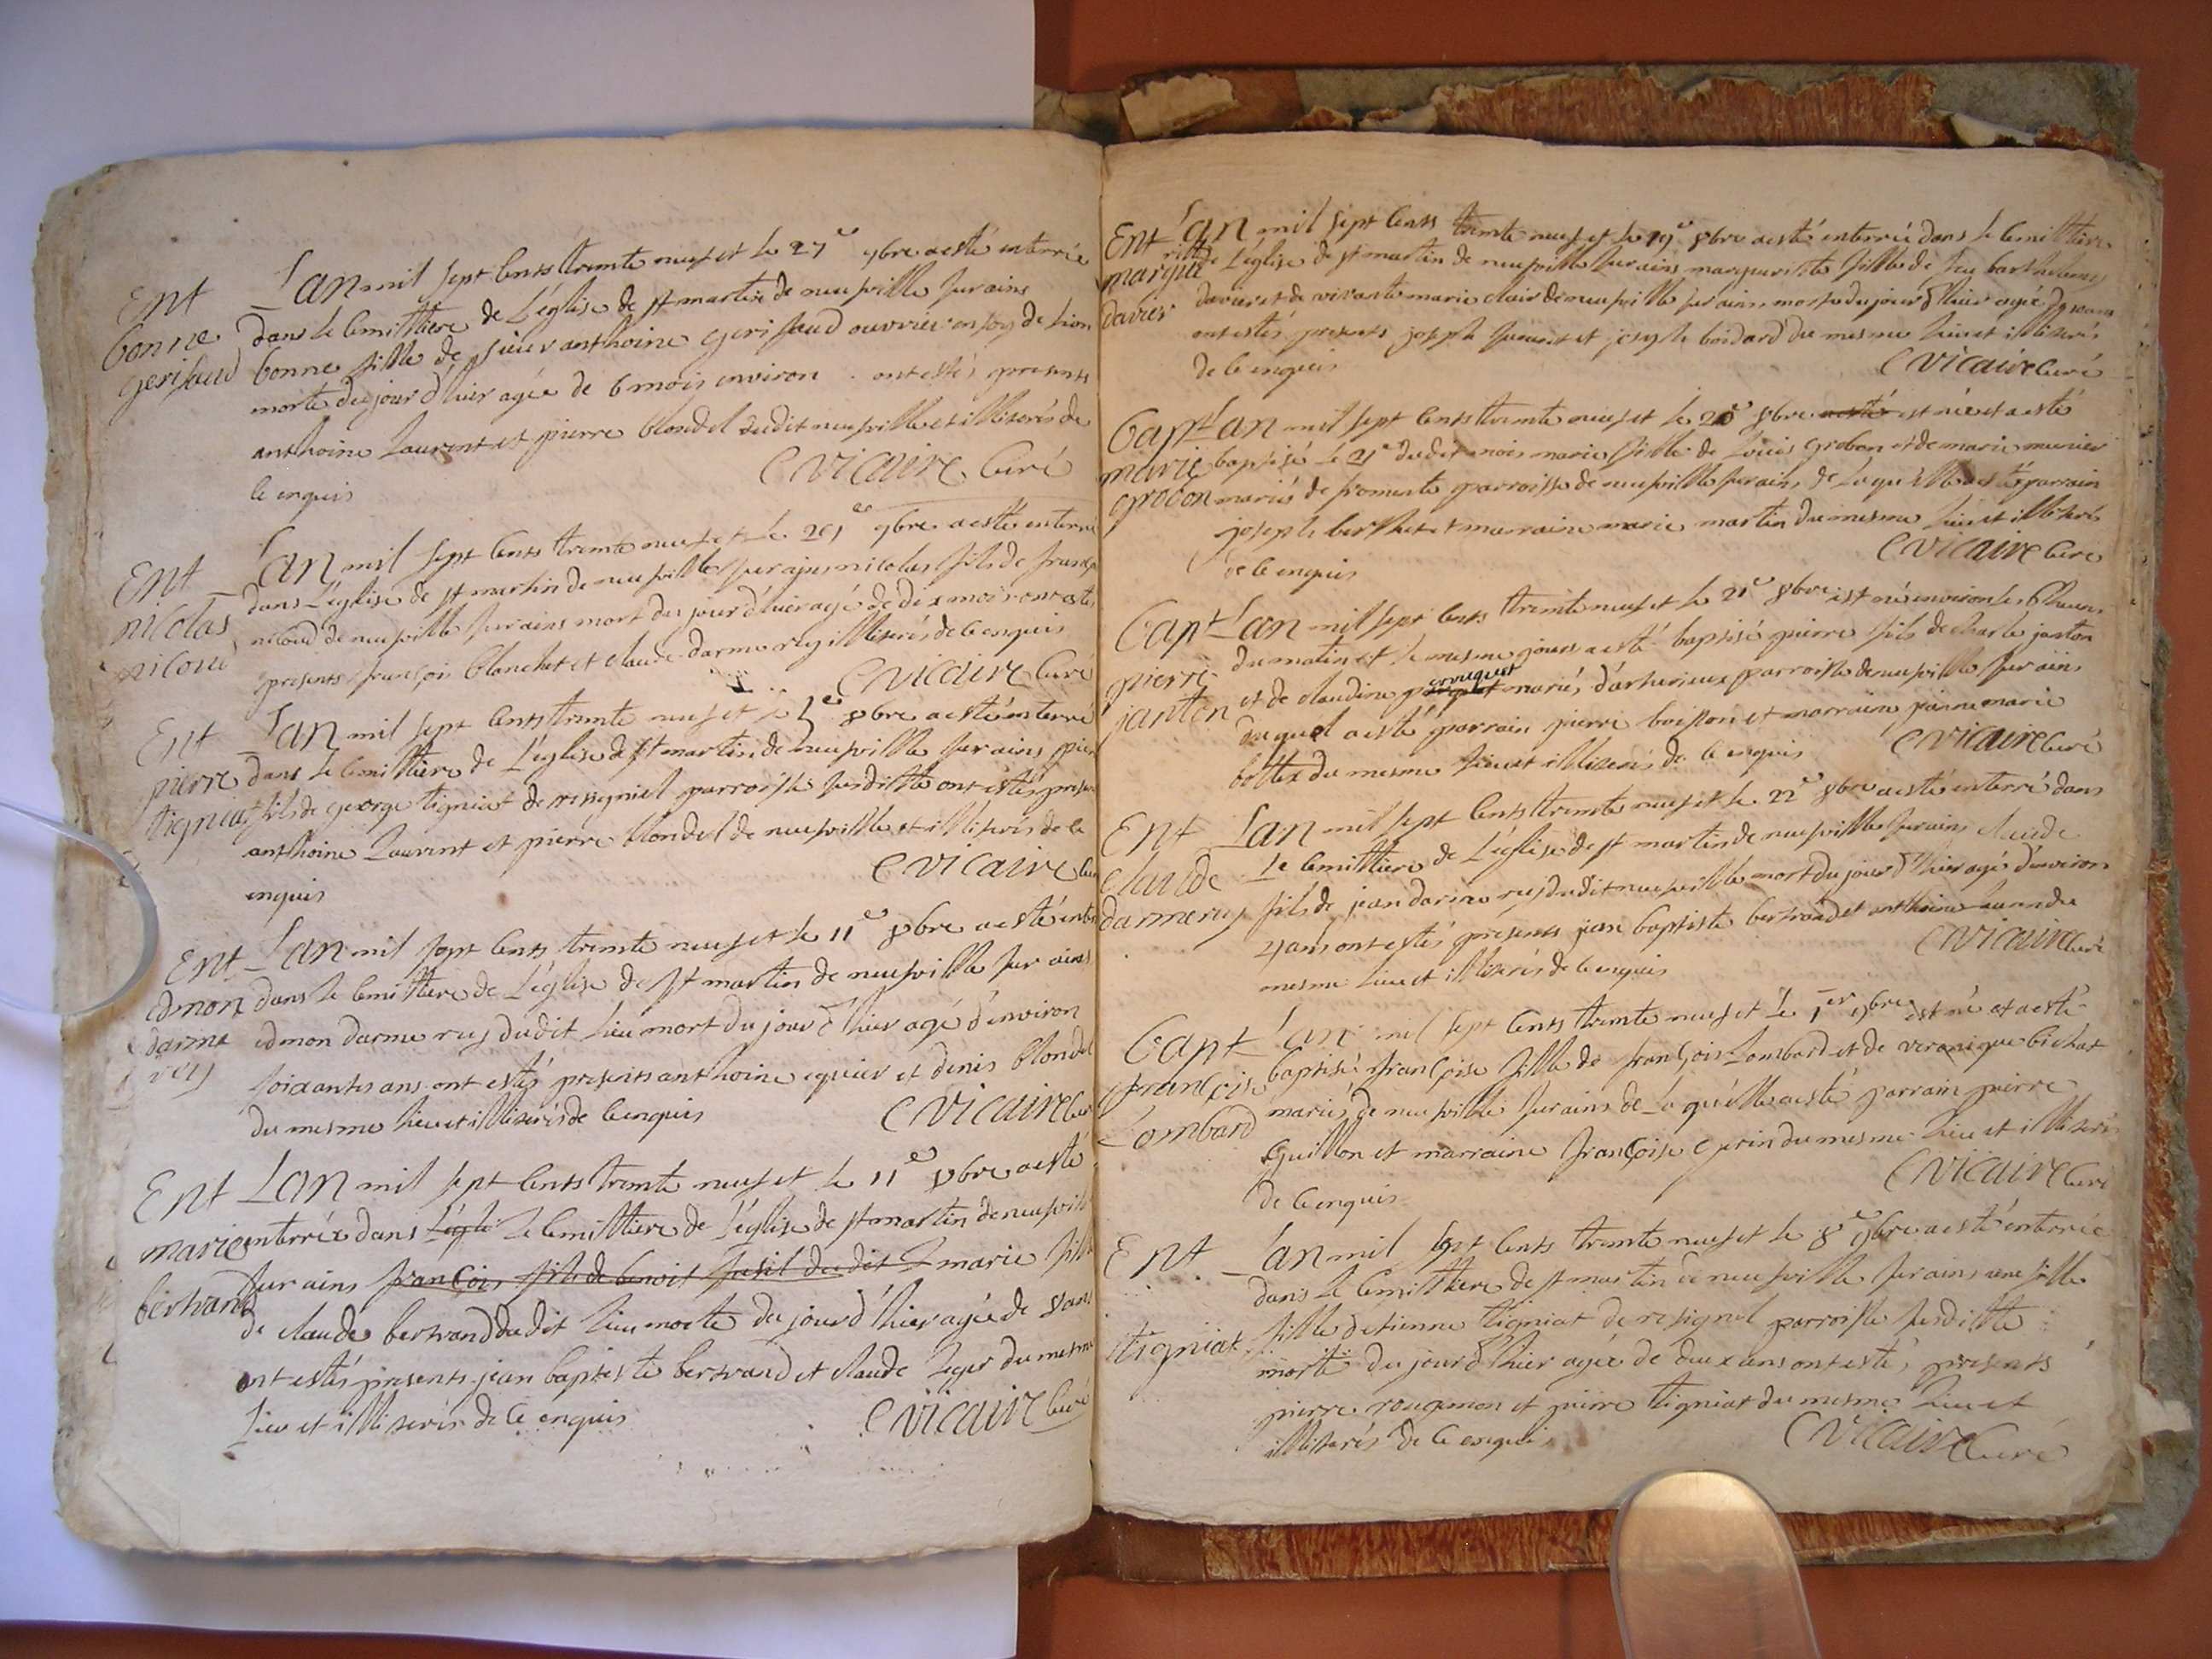 Ent
bonne
gerifaud
Lan mil sept cents trente neuf et le 27e 7bre a esté enterrée
dans le cemittiere de L'église de st martin de neufville sur ains
bonne fille de sieur anthoine gerifaud ouvrier en soy de lion
morte du jour d'hier agée de 6 mois environ ont estés presents
anthoine Laurent et pierre blondel dudit neufville et illiterés de
ce enquis
C Vicaire Curé
Ent
nicolas
nicoud
Lan mil sept cents trente neuf et le 29e 7bre a esté enterré
dans L'église de st martin de neufville sur ains nicolas fils de
nicoud de neufville sur ains mort du jour d'hier agé de dix mois ont estés
presents françois blanchet et claude darmerey illiterés de ce enquis
C Vicaire Curé
Ent
pierre
tigniat
Lan mil sept cents trente neuf et le 8bre a esté enterré
dans le cemittiere de L'église de st martin de neufville sur ains
fils de george tigniat de resigniel parroisse susditte ont estés
anthoine Laurent et pierre blondel de neufville et illiterés de ce
enquis
C Vicaire
Ent
edmon
darme
rey
Lan mil sept cents trente neuf et le 11e 8bre a esté
dans le cemittiere de L'église de st martin de neufville sur ains
edmon darmerey dudit Lieu mort du jour d'hier agé d'environ
soixantes ans ont estés presents anthoine et denis blondel
du mesme lieu et illiterés de ce enquis
C Vicaire
Ent
marie
bertrand
Lan mil sept cents trente neuf et le 11e 8bre a esté
enterrée dans L'egli le cemittiere de L'église de st martin de neufville
sur ains françois fils de benoit dudit L marie fille
de claude bertrand dudit Lieu morte du jour d'hier agée de 8 ans
ont estés presents jean baptiste bertrand et claude Leger du mesme
Lieu et illiterés de ce enquis
C Vicaire Curé
Ent
margue
ritte
davier
Lan mil sept cents trente neuf et le 19e 8bre a esté enterrée dans le cemittiere
de L'église de st martin de neufville sur ains margueritte fille de feu barthelemy
davier et de vivante marie clair de neufville sur ains morte du jour d'hier agée
ont estés presents joseph et joseph boidard du mesme Lieu et illiterés
de ce enquis
C Vicaire Curé
Bapt
marie
grobon
Lan mil sept cents trente neuf et le 20e 8bre a esté est née et a esté
baptisé le 21e dudit mois marie fille de Louis grobon et de marie munier
mariés de fromente parroisse de neufville sur ains de Laquelle a esté parrain
joseph berthet et marraine marie martin du mesme Lieu et illiterés
de ce enquis
C Vicaire Curé
Bapt
pierre
janton
Lan mil sept cents trente neuf et le 21e 8bre est né environ les heures
du matin et le mesme jour a esté baptisé pierre fils de charle janton
et de claudine mariés parroisse de neufville sur ains
duquel a esté parrain pierre boisson et marraine marie
bottex du mesme Lieu et illiterés de ce enquis
C Vicaire Curé
Ent
claude
darmerey
Lan mil sept cents trente neuf et le 22e 8bre a esté enterré dans
Le cemittiere de L'église de st martin de neufville sur ains claude
fils de jean darmerey dudit neufville mort du jour d'hier agé d'environ
4 ans ont estés presents jean baptiste bertrand et anthoine du
mesme Lieu et illiterés de ce enquis
C Vicaire Curé
Bapt
françoise
Lombard
Lan mil sept cents trente neuf et le 1er 9bre est né et a esté
baptisé françoise fille de françois Lombard et de veronique bichat
mariés de neufville sur ains de Laquelle a esté parrain pierre
guillon et marraine françoise gerin du mesme Lieu et illiterés
de ce enquis
C Vicaire Curé
Ent
tigniat
Lan mil sept cents trente neuf et le 8e 9bre a esté enterrée
dans le cemittiere de st martin de neufville sur ains une fille
fille d'etienne tigniat de resigniel parroisse susditte
morte du jour d'hier agée de deux ans ont estés presents
pierre rougemon et pierre tigniat du mesme Lieu et
illiterés de ce enquis
C Vicaire Curé